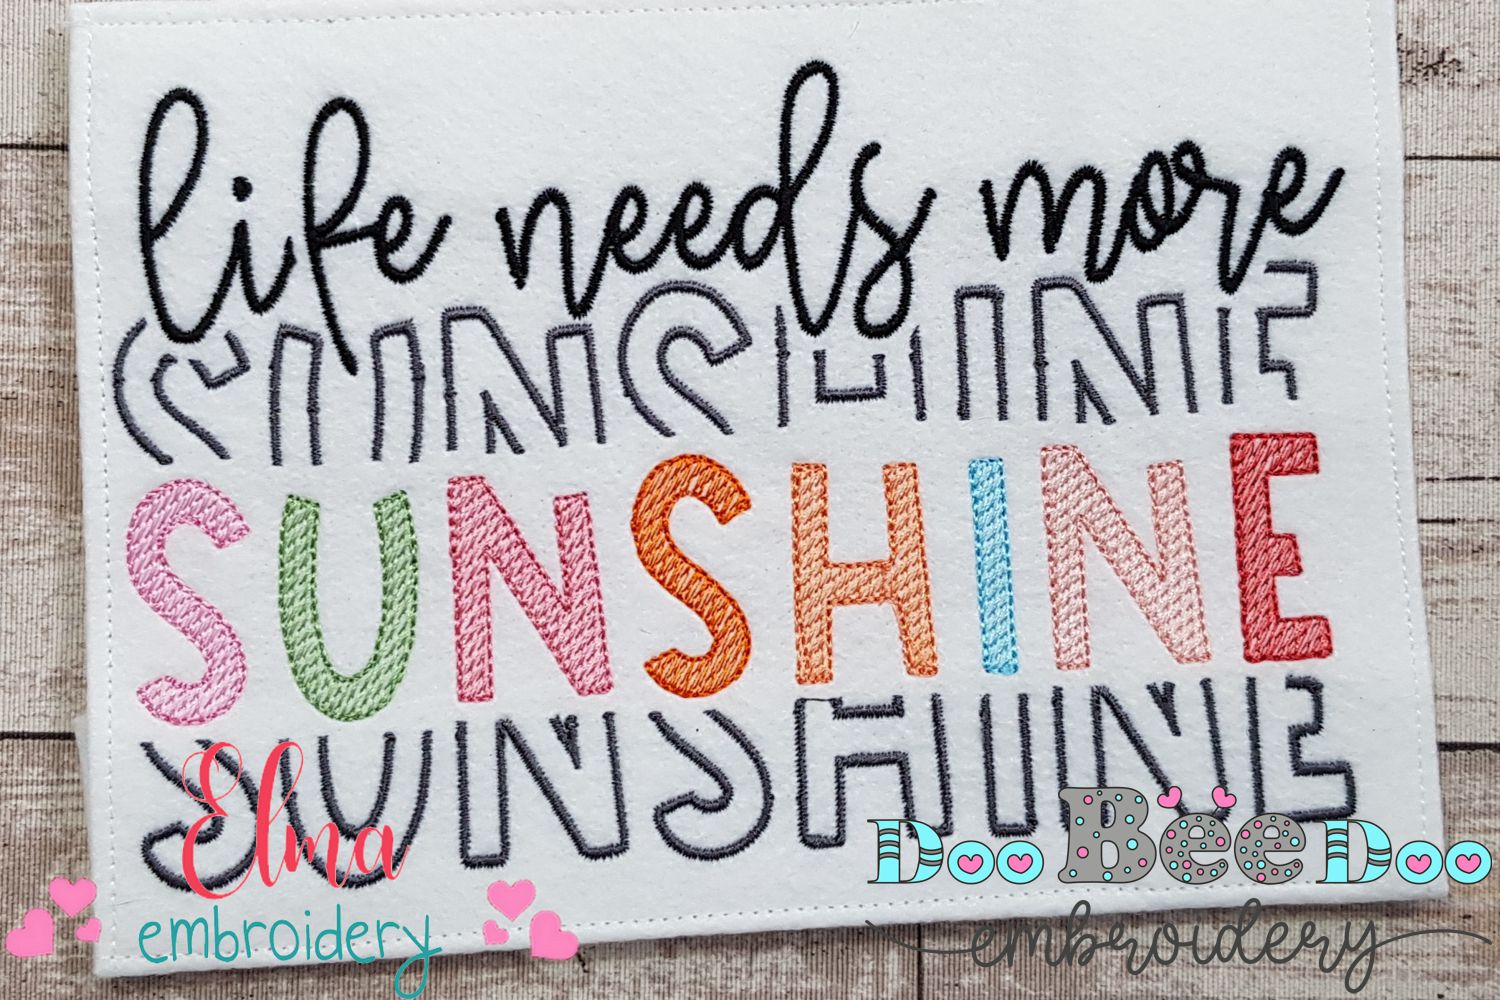 life needs more
SUNSHINE
SUNSHINE
SUNSHINE
Elma
embroidery
Doo Bee Doo
embroidery